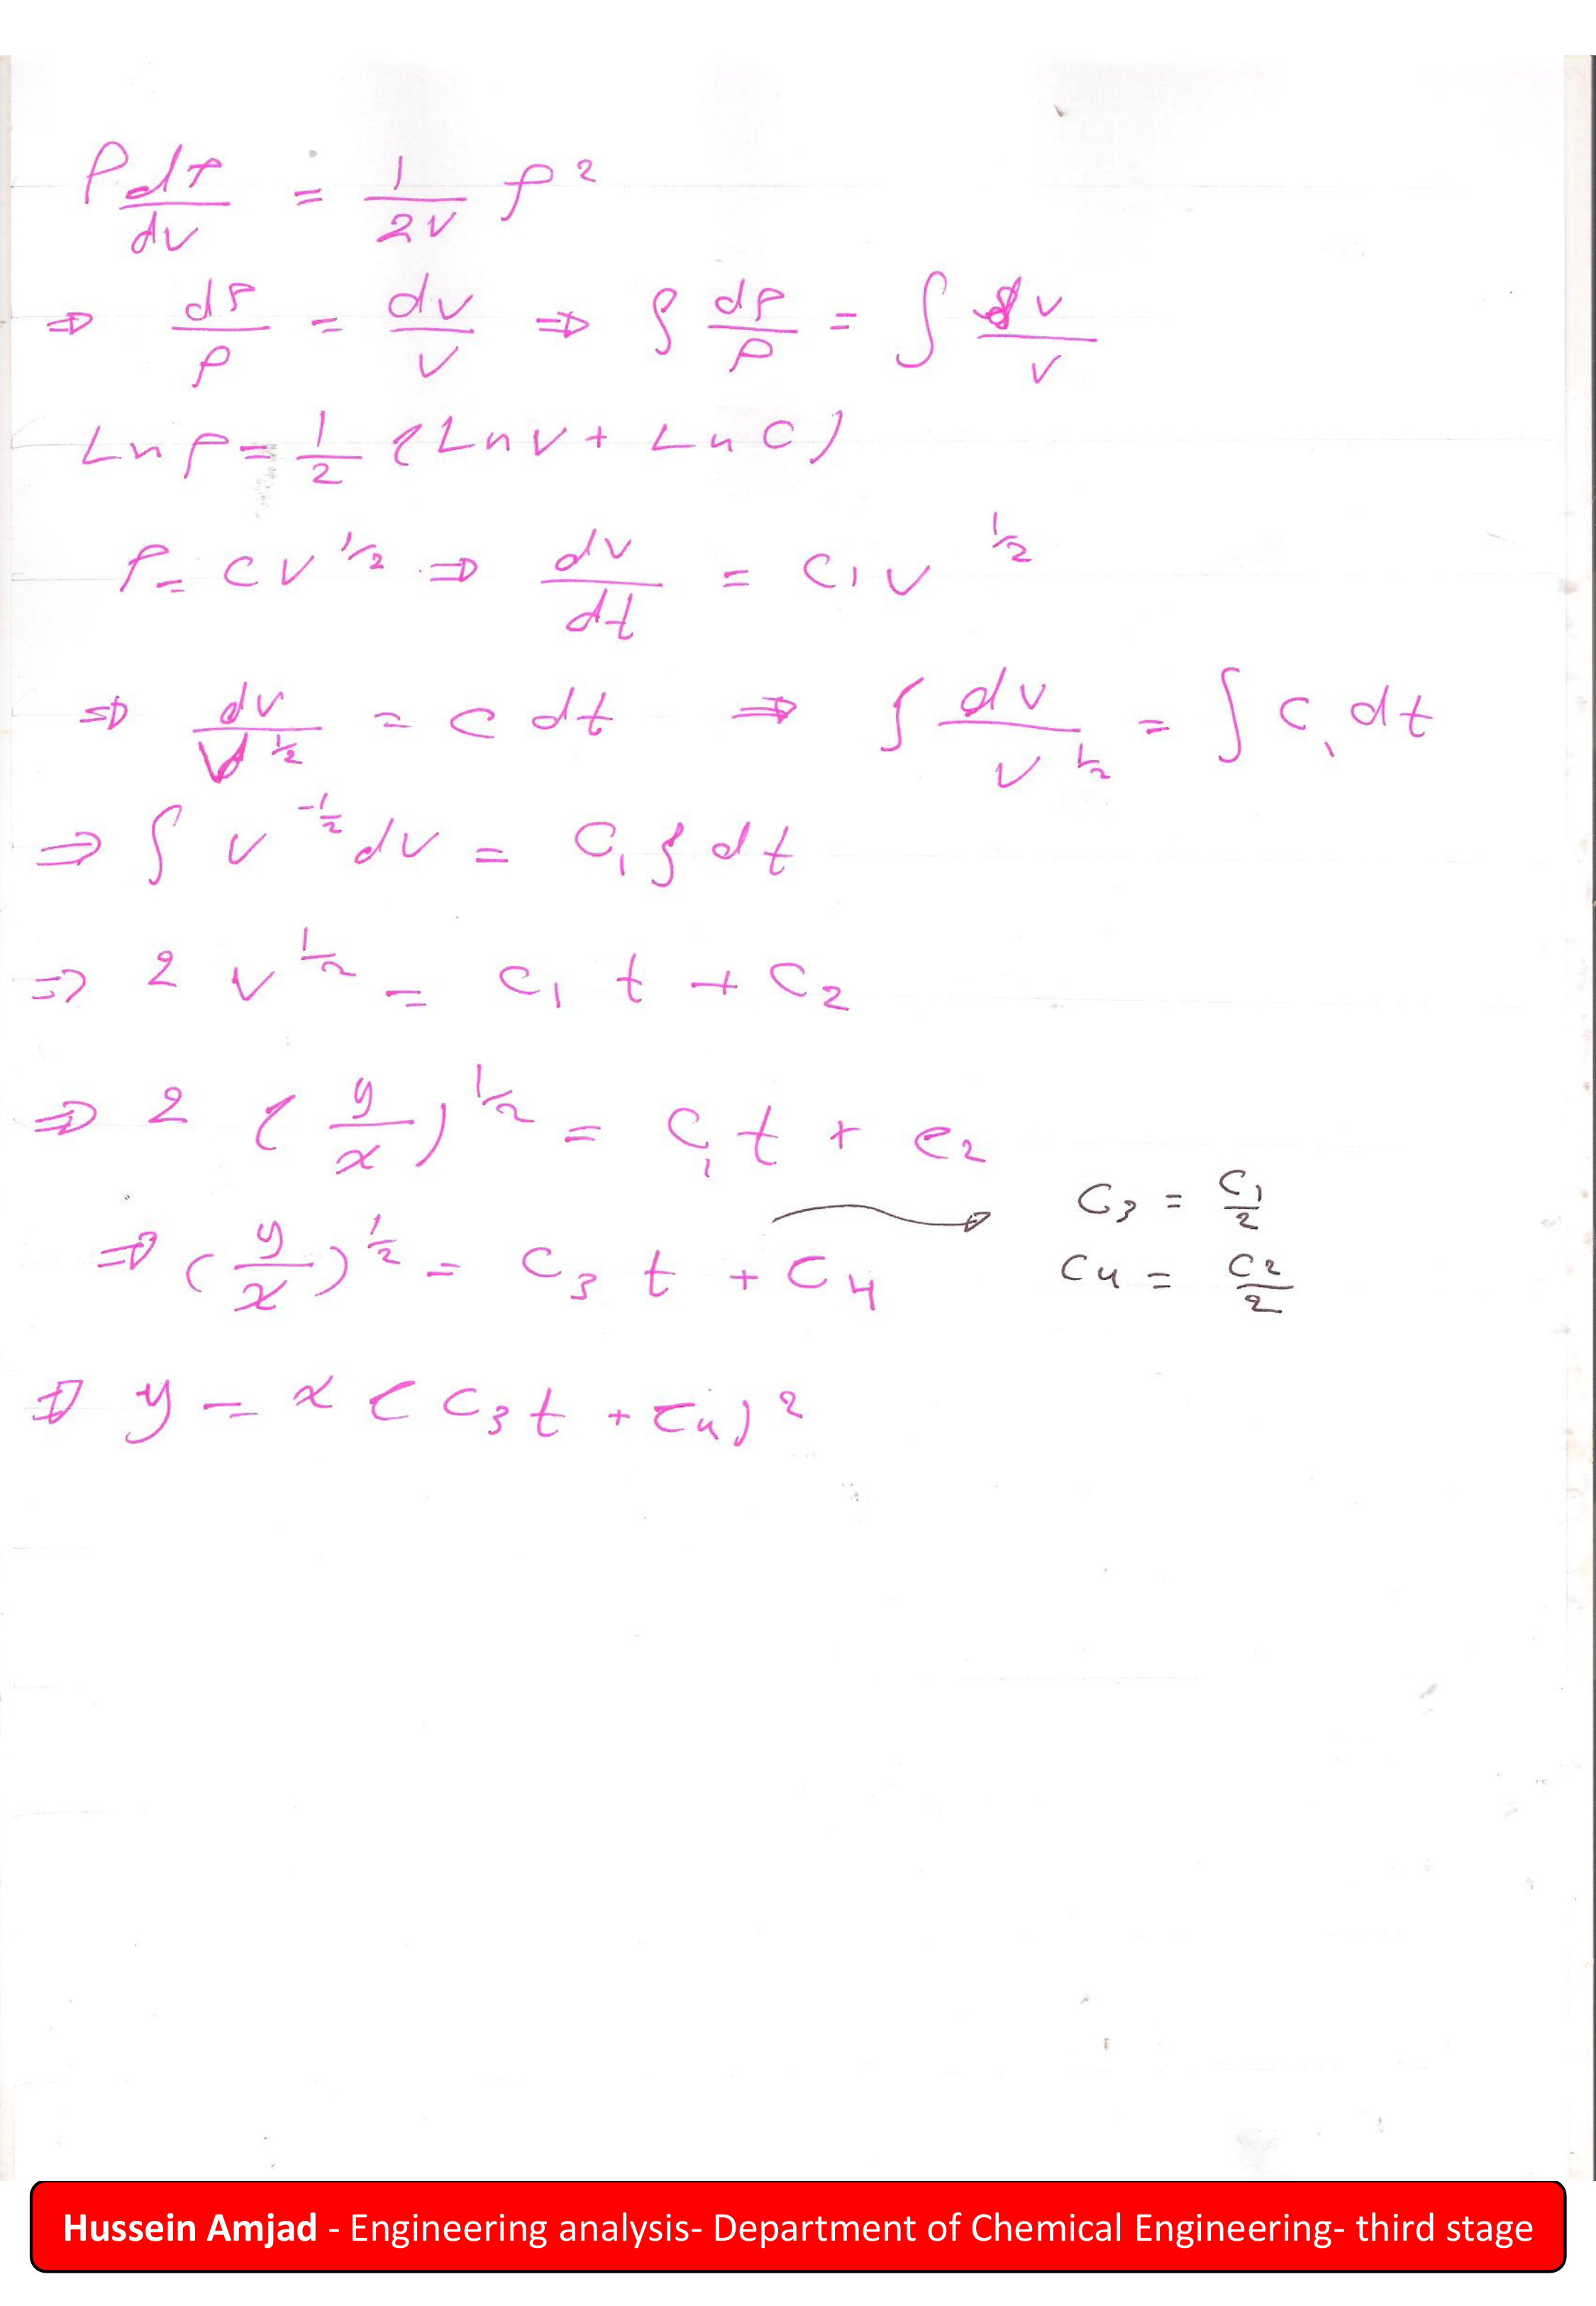 P dP/dv = 1/2v P²
⇒ dP/P = dv/v ⇒ ∫ dP/P = ∫ dv/v
Ln P = 1/2 (Ln v + Ln C)
P = C v^1/2 ⇒ dv/dt = C₁ v^1/2
⇒ dv/v^1/2 = C dt ⇒ ∫ dv/v^1/2 = ∫ C₁ dt
⇒ ∫ v^-1/2 dv = C₁ ∫ dt
⇒ 2 v^1/2 = C₁ t + C₂
⇒ 2 (y/x)^1/2 = C₁ t + C₂
⇒ (y/x)^1/2 = C₃ t + C₄ → C₃ = C₁/2
C₄ = C₂/2
⇒ y = x (C₃ t + C₄)²
Hussein Amjad - Engineering analysis- Department of Chemical Engineering- third stage